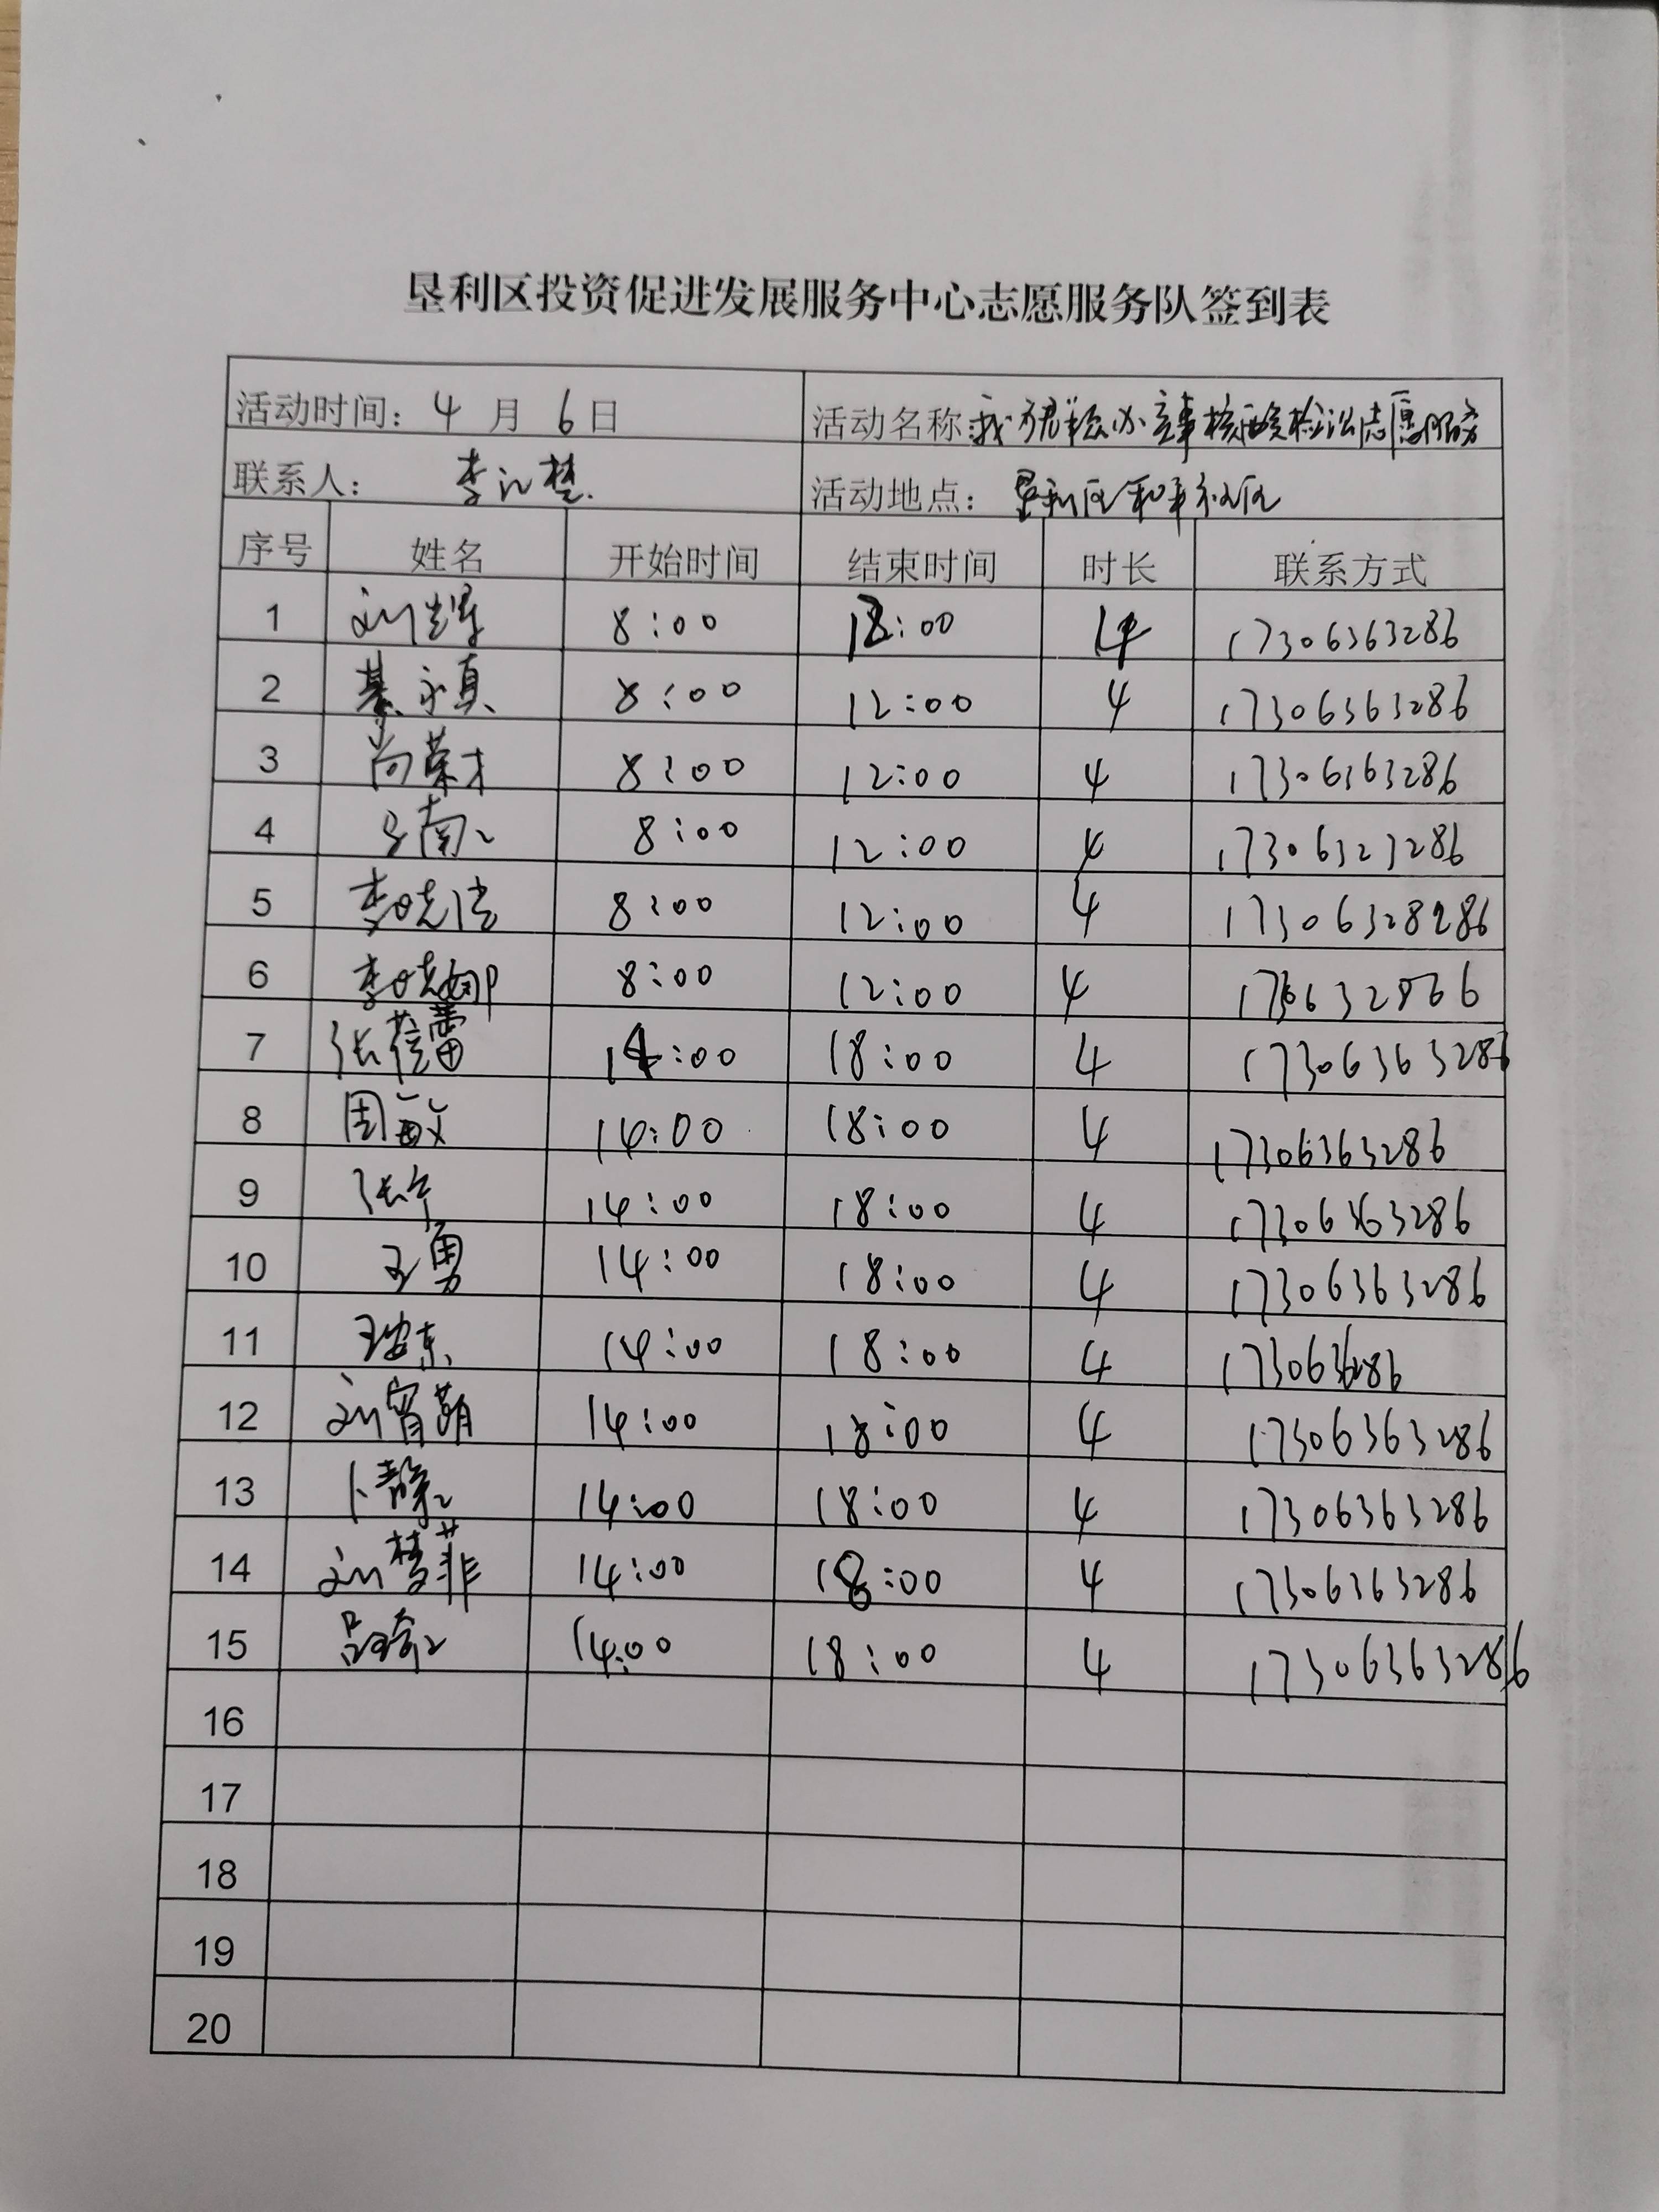 垦利区投资促进发展服务中心志愿服务队签到表
活动时间：4月6日 活动名称：我为群众办实事核酸检测志愿服务
联系人：李 楚 活动地点：垦利区和平社区
序号 姓名 开始时间 结束时间 时长 联系方式
1 刘辉 8:00 12:00 4 17306363286
2 綦永真 8:00 12:00 4 17306363286
3 尚荣才 8:00 12:00 4 17306363286
4 南 8:00 12:00 4 17306323286
5 李晓 8:00 12:00 4 17306328286
6 李晓娜 8:00 12:00 4
7 张蓓蕾 14:00 18:00 4 17306363286
8 周敏 14:00 18:00 4 17306363286
9 张 14:00 18:00 4 17306363286
10 王勇 14:00 18:00 4 17306363286
11 14:00 18:00 4
12 刘 14:00 18:00 4 17306363286
13 卜静 14:00 18:00 4 17306363286
14 刘梦菲 14:00 18:00 4 17306363286
15 吕 14:00 18:00 4 17306363286
16
17
18
19
20